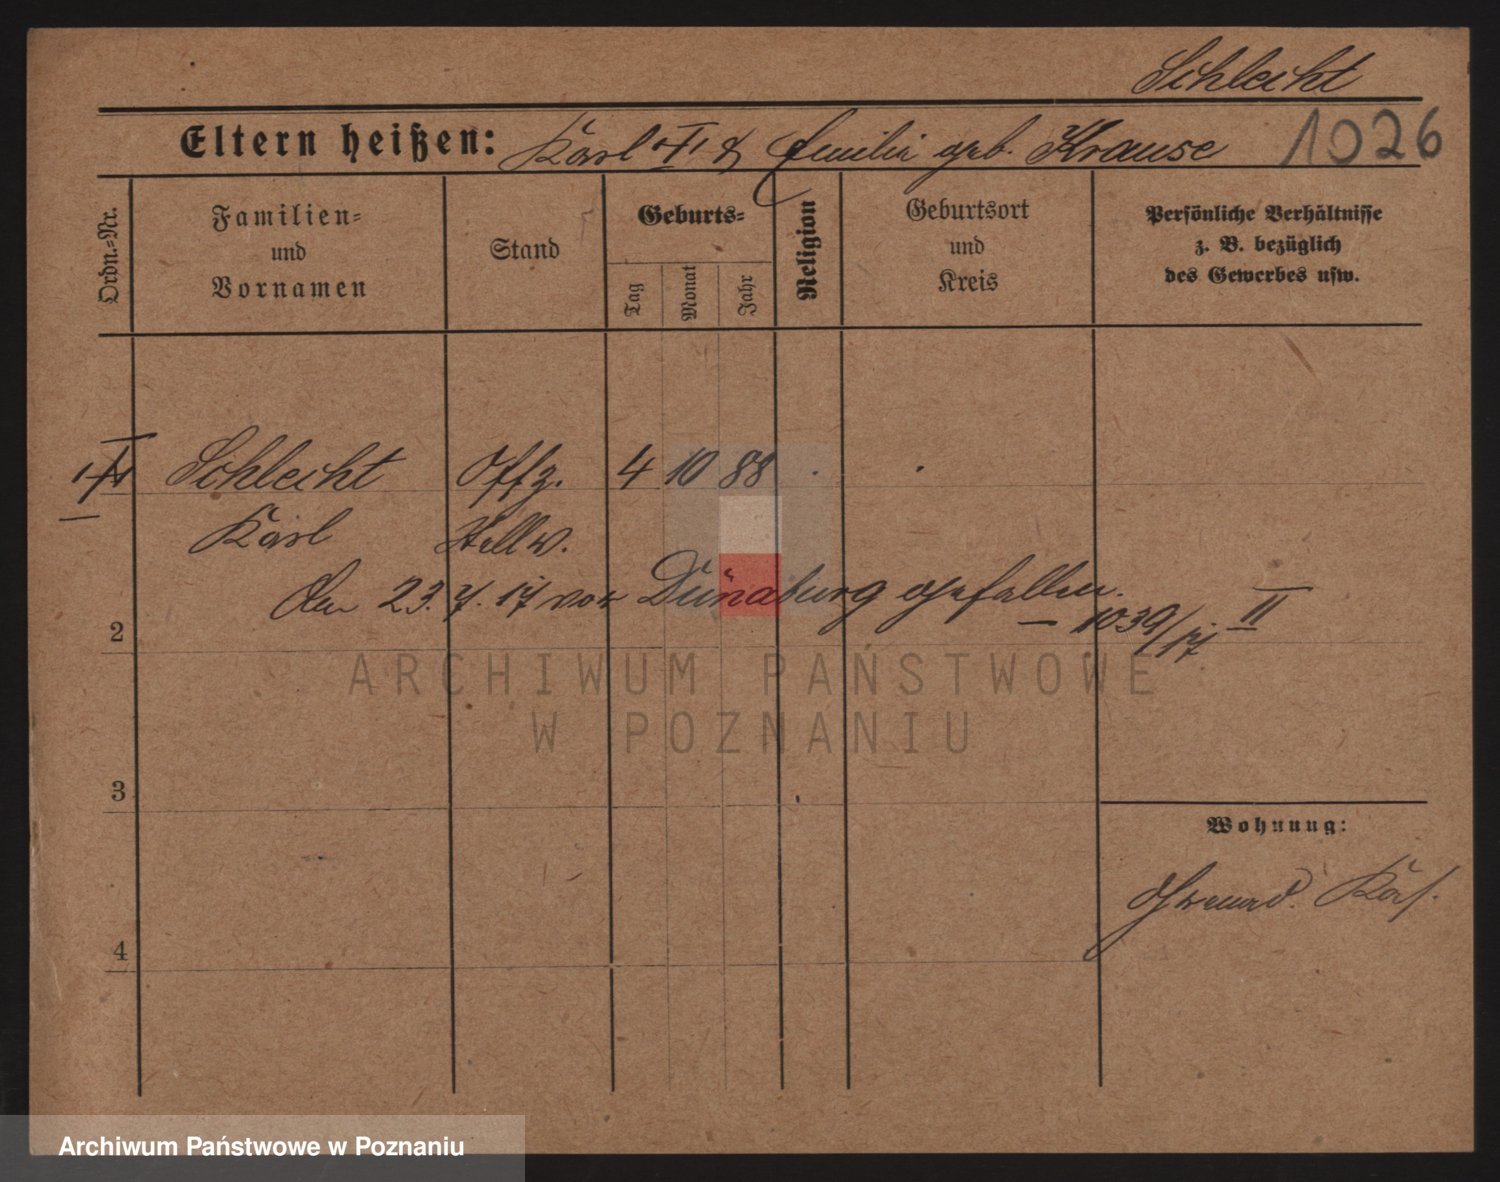 Schlecht
Eltern heißen: Karl † & Emilie geb. Krause 1026
Ordn.-Nr.
Familien-
und
Vornamen
Stand
Geburts-
Tag
Monat
Jahr
Religion
Geburtsort
und
Kreis
Persönliche Verhältnisse
z. B. bezüglich
des Gewerbes usw.
† Schlecht Offz. 4 10 88 . .
Karl Stellv.
den 23. 7. 17 vor Dünaburg gefallen.
— 1039/17 II
2
3
4
Wohnung:
ARCHIWUM PAŃSTWOWE
W POZNANIU
Archiwum Państwowe w Poznaniu